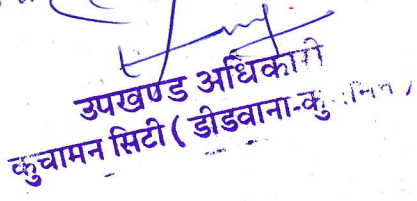 उपखण्ड अधिकारी
कुचामन सिटी ( डीडवाना-कु